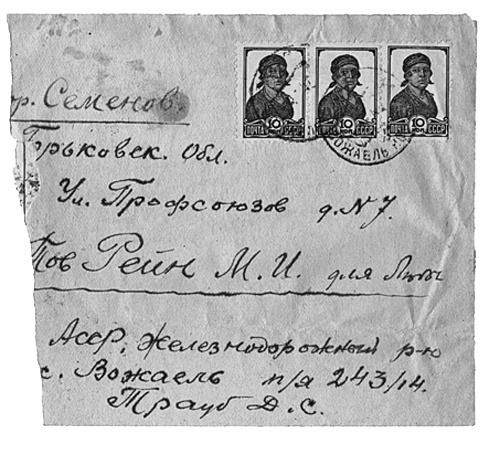 гор. Семенов.
Горьковск. Обл.
Ул. Профсоюзов д. N 7.
Тов Рейн М. И. для Ляли
Асср, Железнодорожный р-н
с. Вожаель п/я 243/14.
Трауб Д. С.
10 ПОЧТА СССР
10 ПОЧТА СССР
10 ПОЧТА СССР
ВОЖАЕЛЬ